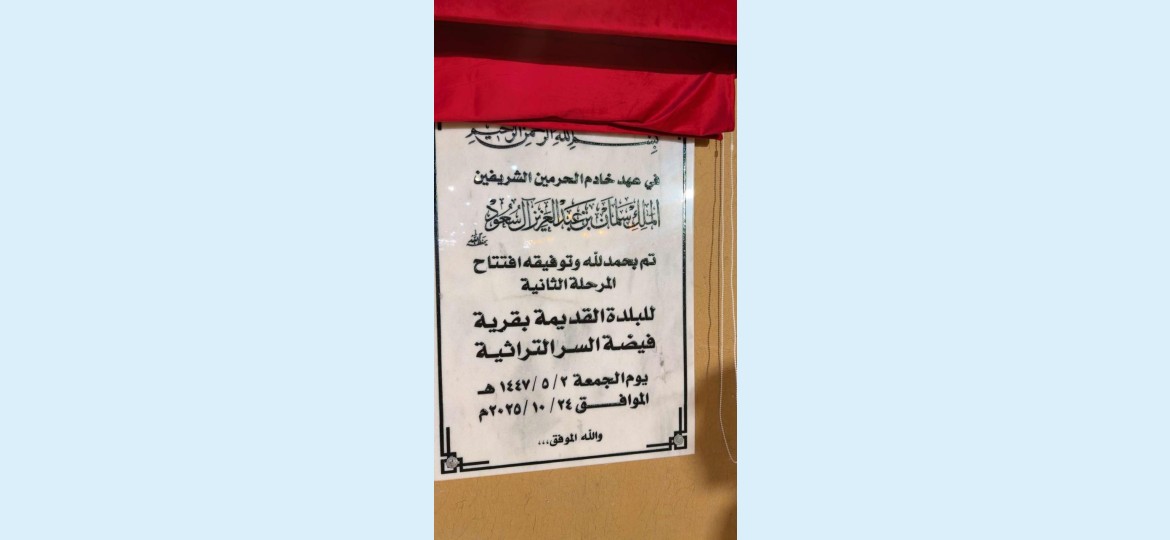 بسم الله الرحمن الرحيم
في عهد خادم الحرمين الشريفين
الملك سلمان بن عبدالعزيز آل سعود
حفظه الله
تم بحمد لله وتوفيقه افتتاح
المرحلة الثانية
للبلدة القديمة بقرية
فيضة السر التراثية
يوم الجمعة ٢ / ٥ / ١٤٤٧ هـ
الموافق ٢٤ / ١٠ / ٢٠٢٥م
والله الموفق...